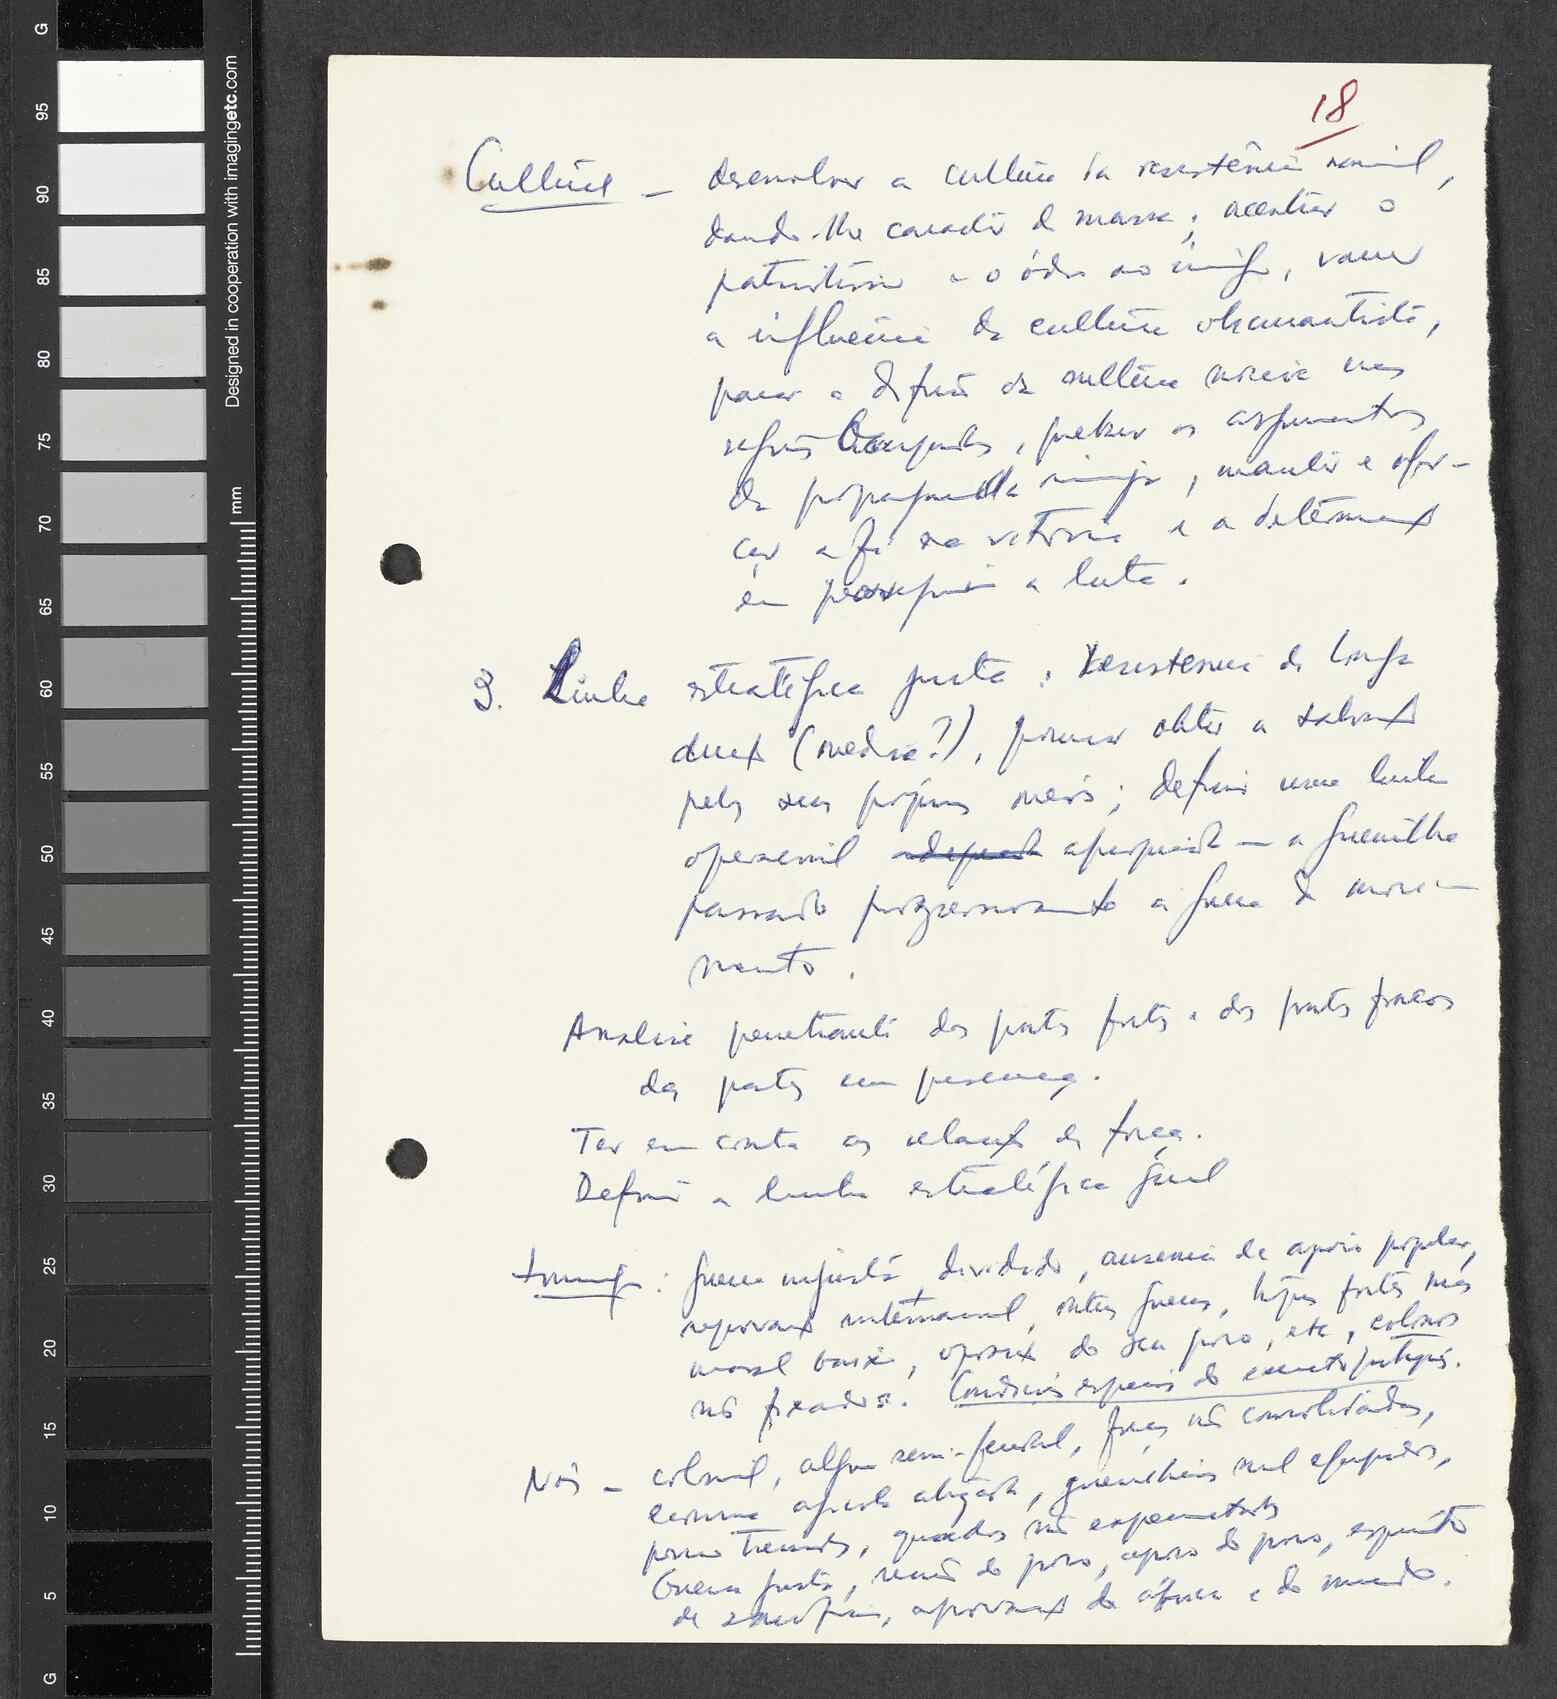 18
Cultura — desenvolver a cultura da resistência nacional,
dando-lhe caracter de massa; acentuar o
patriotismo e o ódio ao inimigo, vencer
a influência da cultura obscurantista,
parar a difusão da cultura nociva nas
regiões ocupadas, quebrar os argumentos
da propaganda inimiga, manter e refor-
çar a fé na vitória e a determinação
em prosseguir a luta.
3. Linha estratégica justa: resistência de longa
duração (média?), procurar obter a salvação
pelos seus próprios meios; definir uma linha
operacional apropriada — a guerrilha
passando progressivamente à guerra de movi-
mento.
Analise penetrante dos pontos fortes e dos pontos fracos
das partes em presença.
Ter em conta as relações de força.
Definir a linha estratégica geral
Inimigo: guerra injusta, dividido, ausencia de apoio popular,
reprovação internacional, outras guerras, tropas fortes mas
moral baixo, oposição do seu povo, etc, colonos
não fixados. Condições especiais do exército português.
Nós — colonial, algo semi-feudal, forças não consolidadas,
economia agricola atrazada, guerrilheiros mal equipados,
pouco treinados, quadros não experimentados
Guerra justa, união do povo, apoio do povo, espírito
de sacrifício, aprovação da áfrica e do mundo.
G
95
90
85
80
75
70
65
60
55
50
45
40
35
30
25
20
15
10
5
G
Designed in cooperation with imagingetc.com
mm